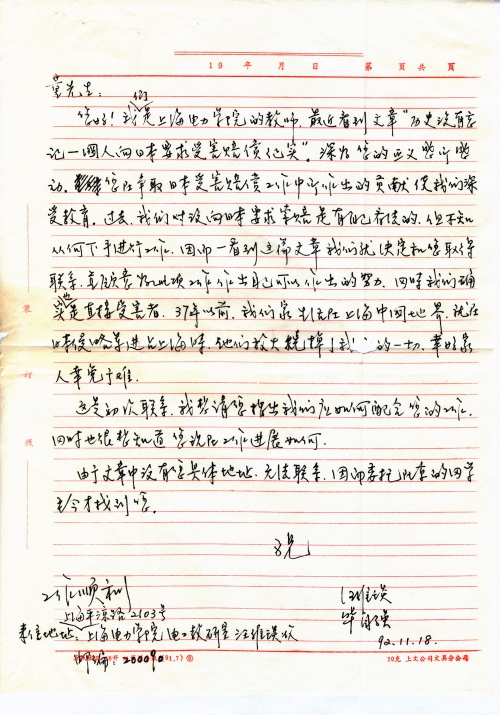 19 年 月 日 第 页共 页
童先生：
您好！我们是上海电力学院的教师，最近看到文章“历史没有忘
记一个人向日本要求受害赔偿纪实”。深为您的正义感所感
动。您在争取日本受害赔偿工作中所作出的贡献使我们深
受教育。过去，我们对没向日本要求索赔是有自己看法的，但不知
从何下手进行工作，因而一看到这篇文章我们就决定和您取得
联系，并愿意为此项工作作出自己可以作出的努力。同时我们确
实也是直接受害者，37年以前，我们家生活在上海中国地界，就在
日本侵略军进占上海时，他们放火烧掉了我们的一切，幸好家
人幸免于难。
这是初次联系，我想请您提出我们应如何配合您的工作，
同时也很想知道您现在工作进展如何。
由于文章中没有您具体地址，无法联系，因而委托在京的同学
至今才找到您。
祝
工作顺利
汪维祺
上海平凉路2103号
来信地址：上海电力学院电工教研室汪维祺收
92.11.18.
邮编：200090
装
订
线
(91.7)
70克 上文公司文具分公司